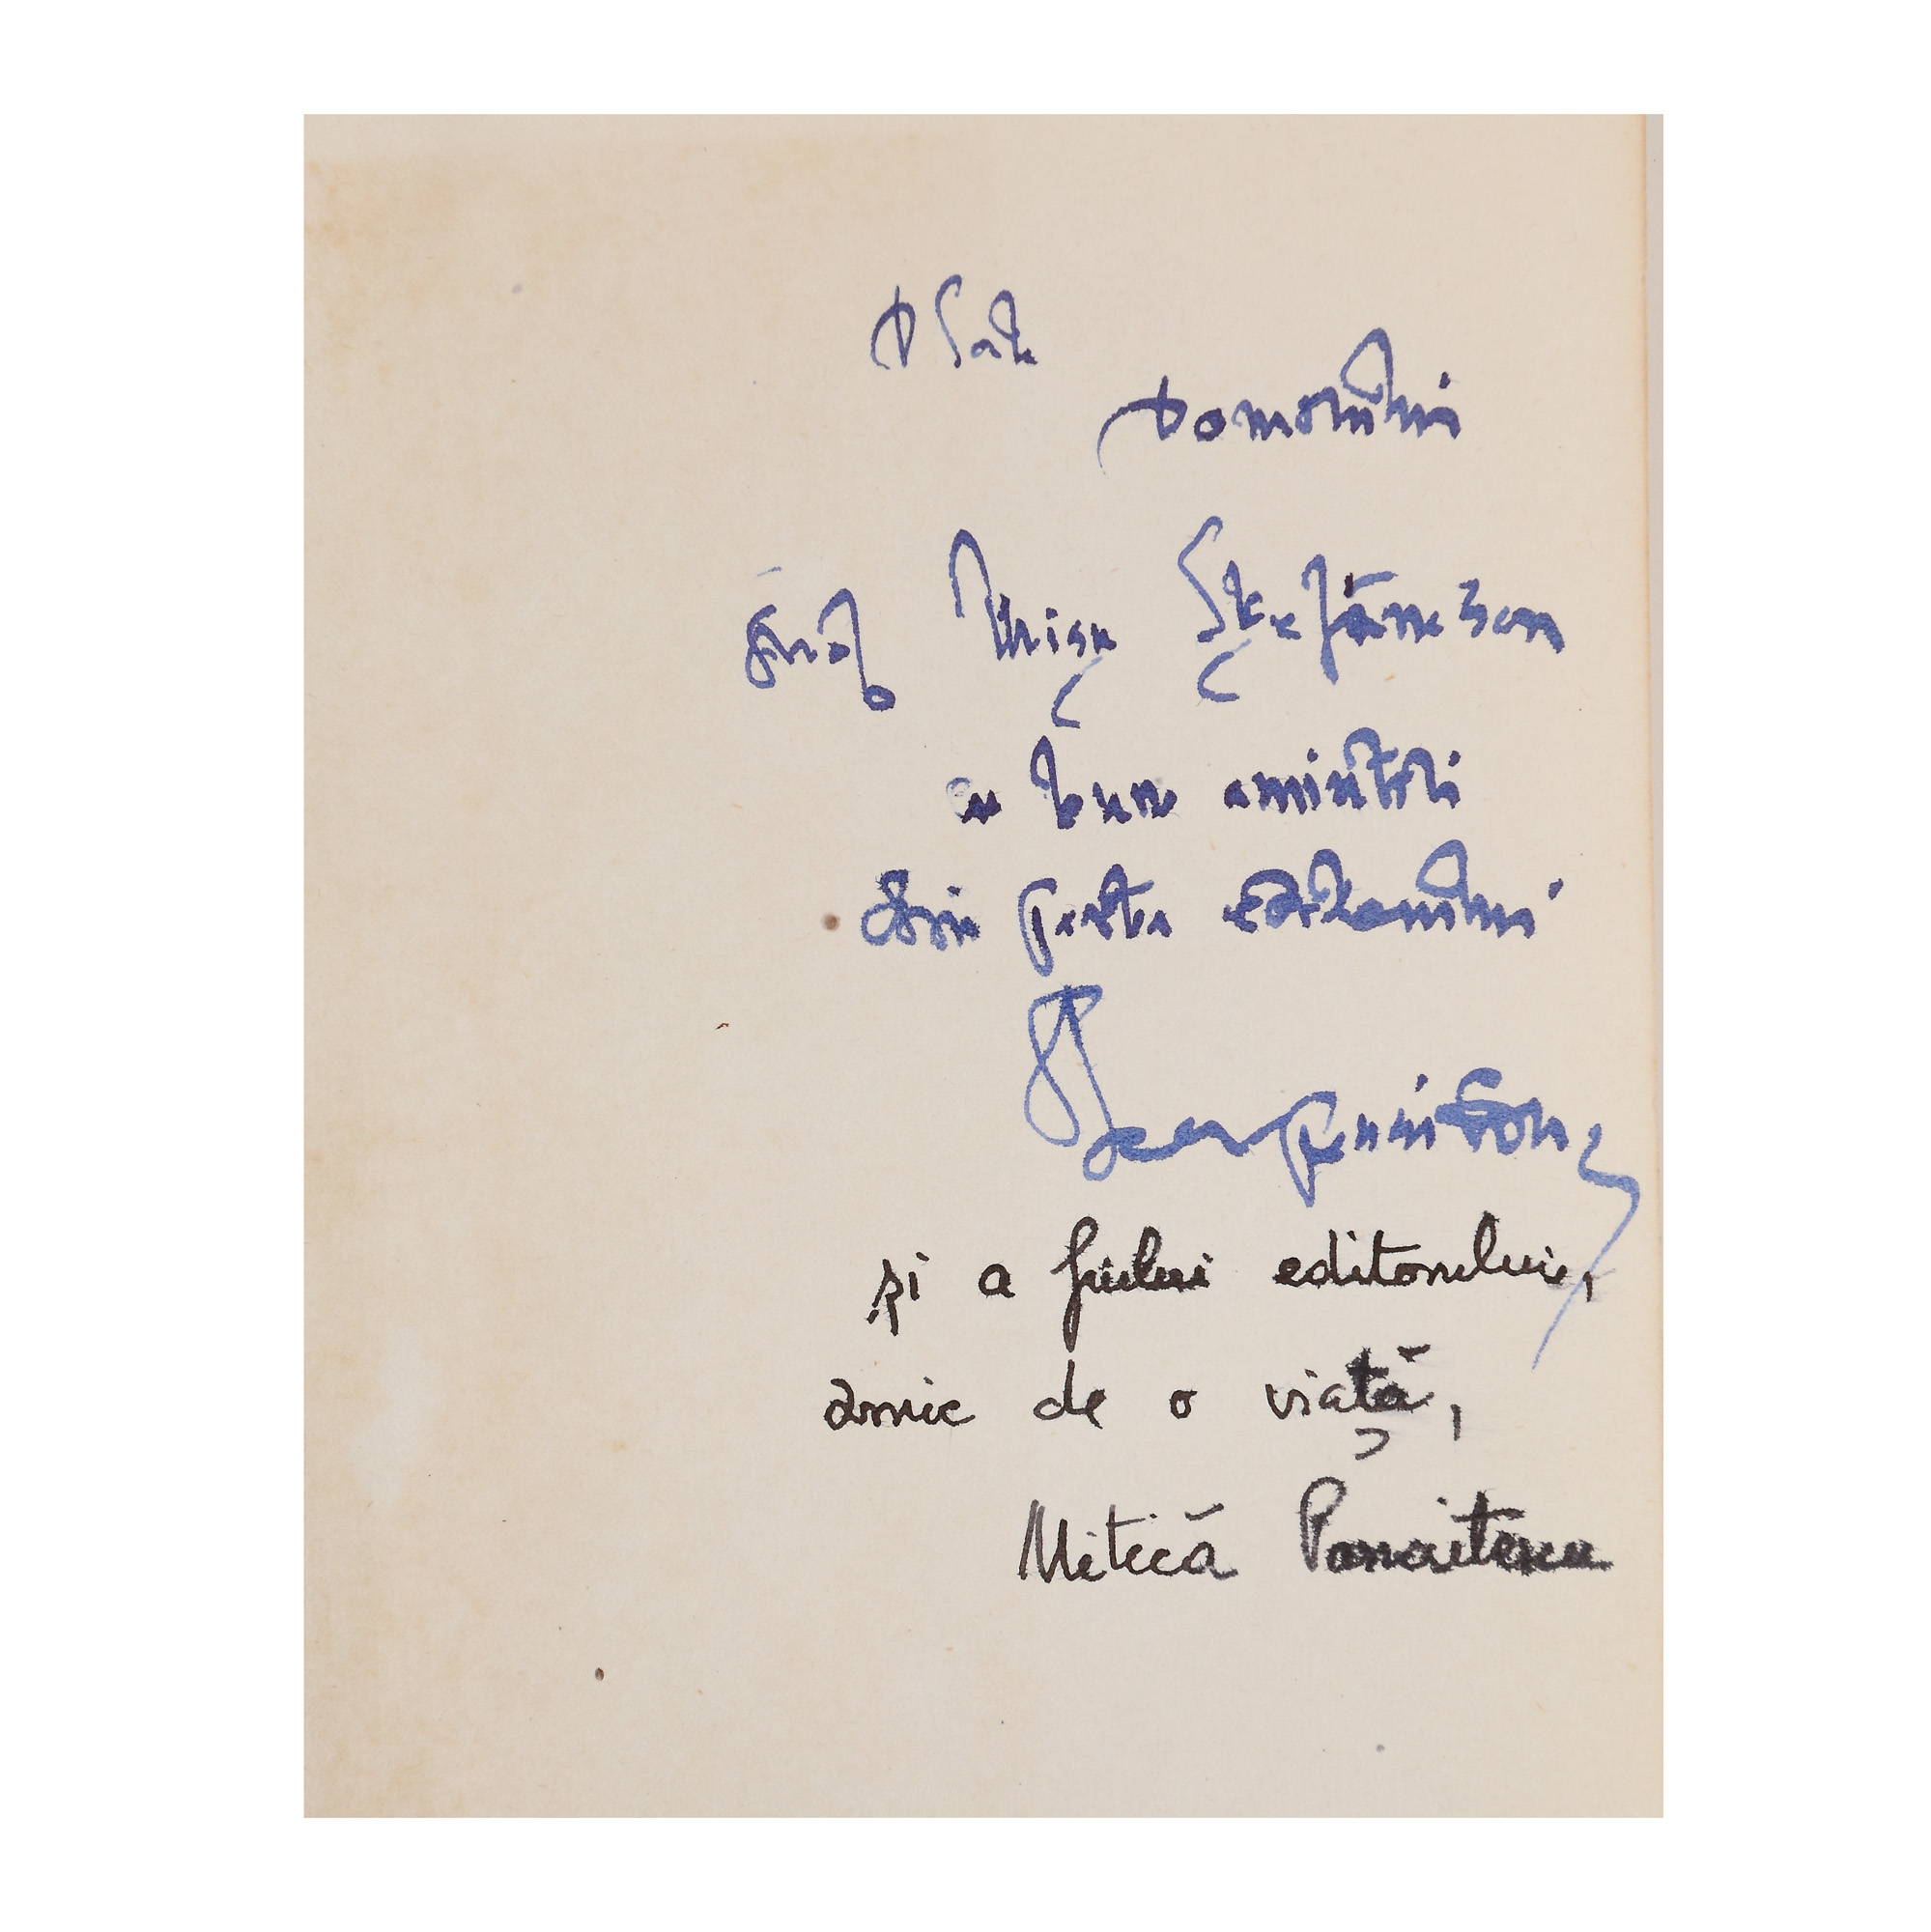 D Sale
Domnului
Prof Mișu Ștefănescu
cu bune amintiri
din partea editorului
Perpessicius
și a fiului editorului,
amic de o viață,
Mitică Panaitescu